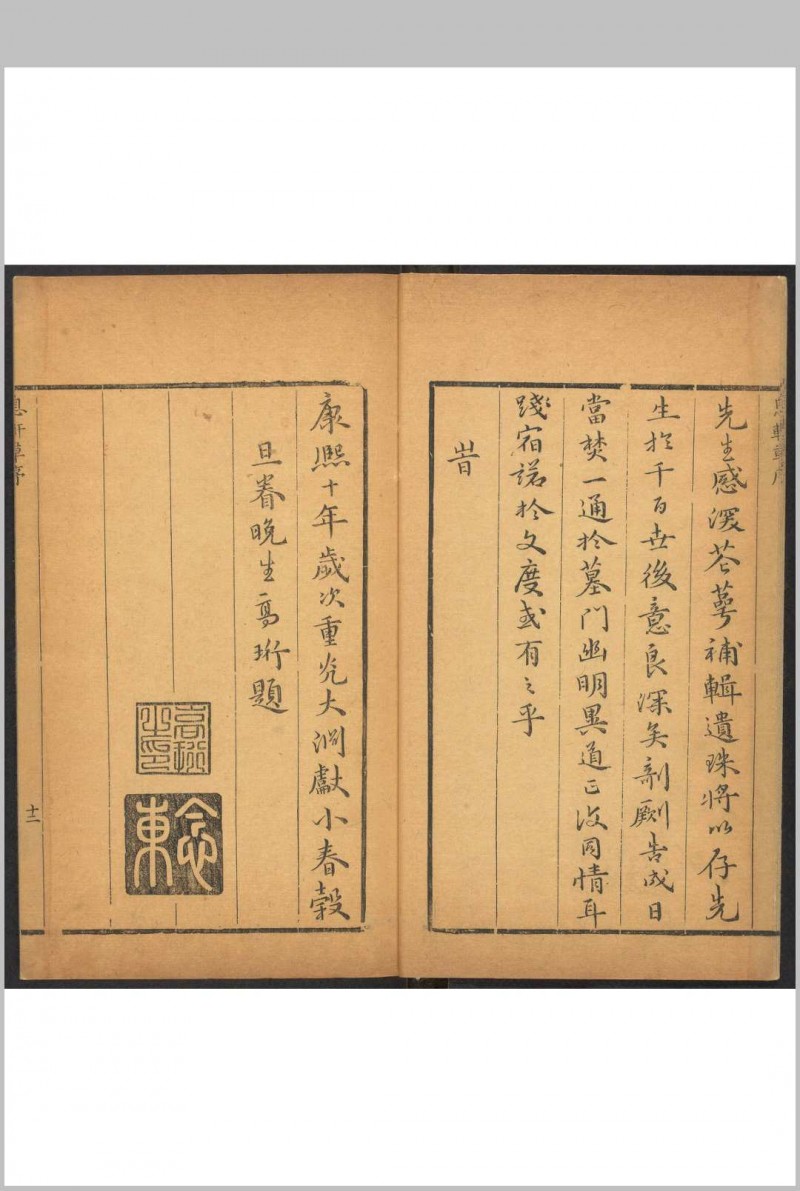 先生感深苍蕚補輯遺珠將以存先
生扵千百世後意良深矣剞劂告成日
當焚一通扵墓門幽明異道正復同情耳
踐宿諾扵文度或有之乎
旹
康熙十年歲次重光大淵獻小春穀
旦眷晚生高珩題
高珩之印
念東
息軒草序
十二